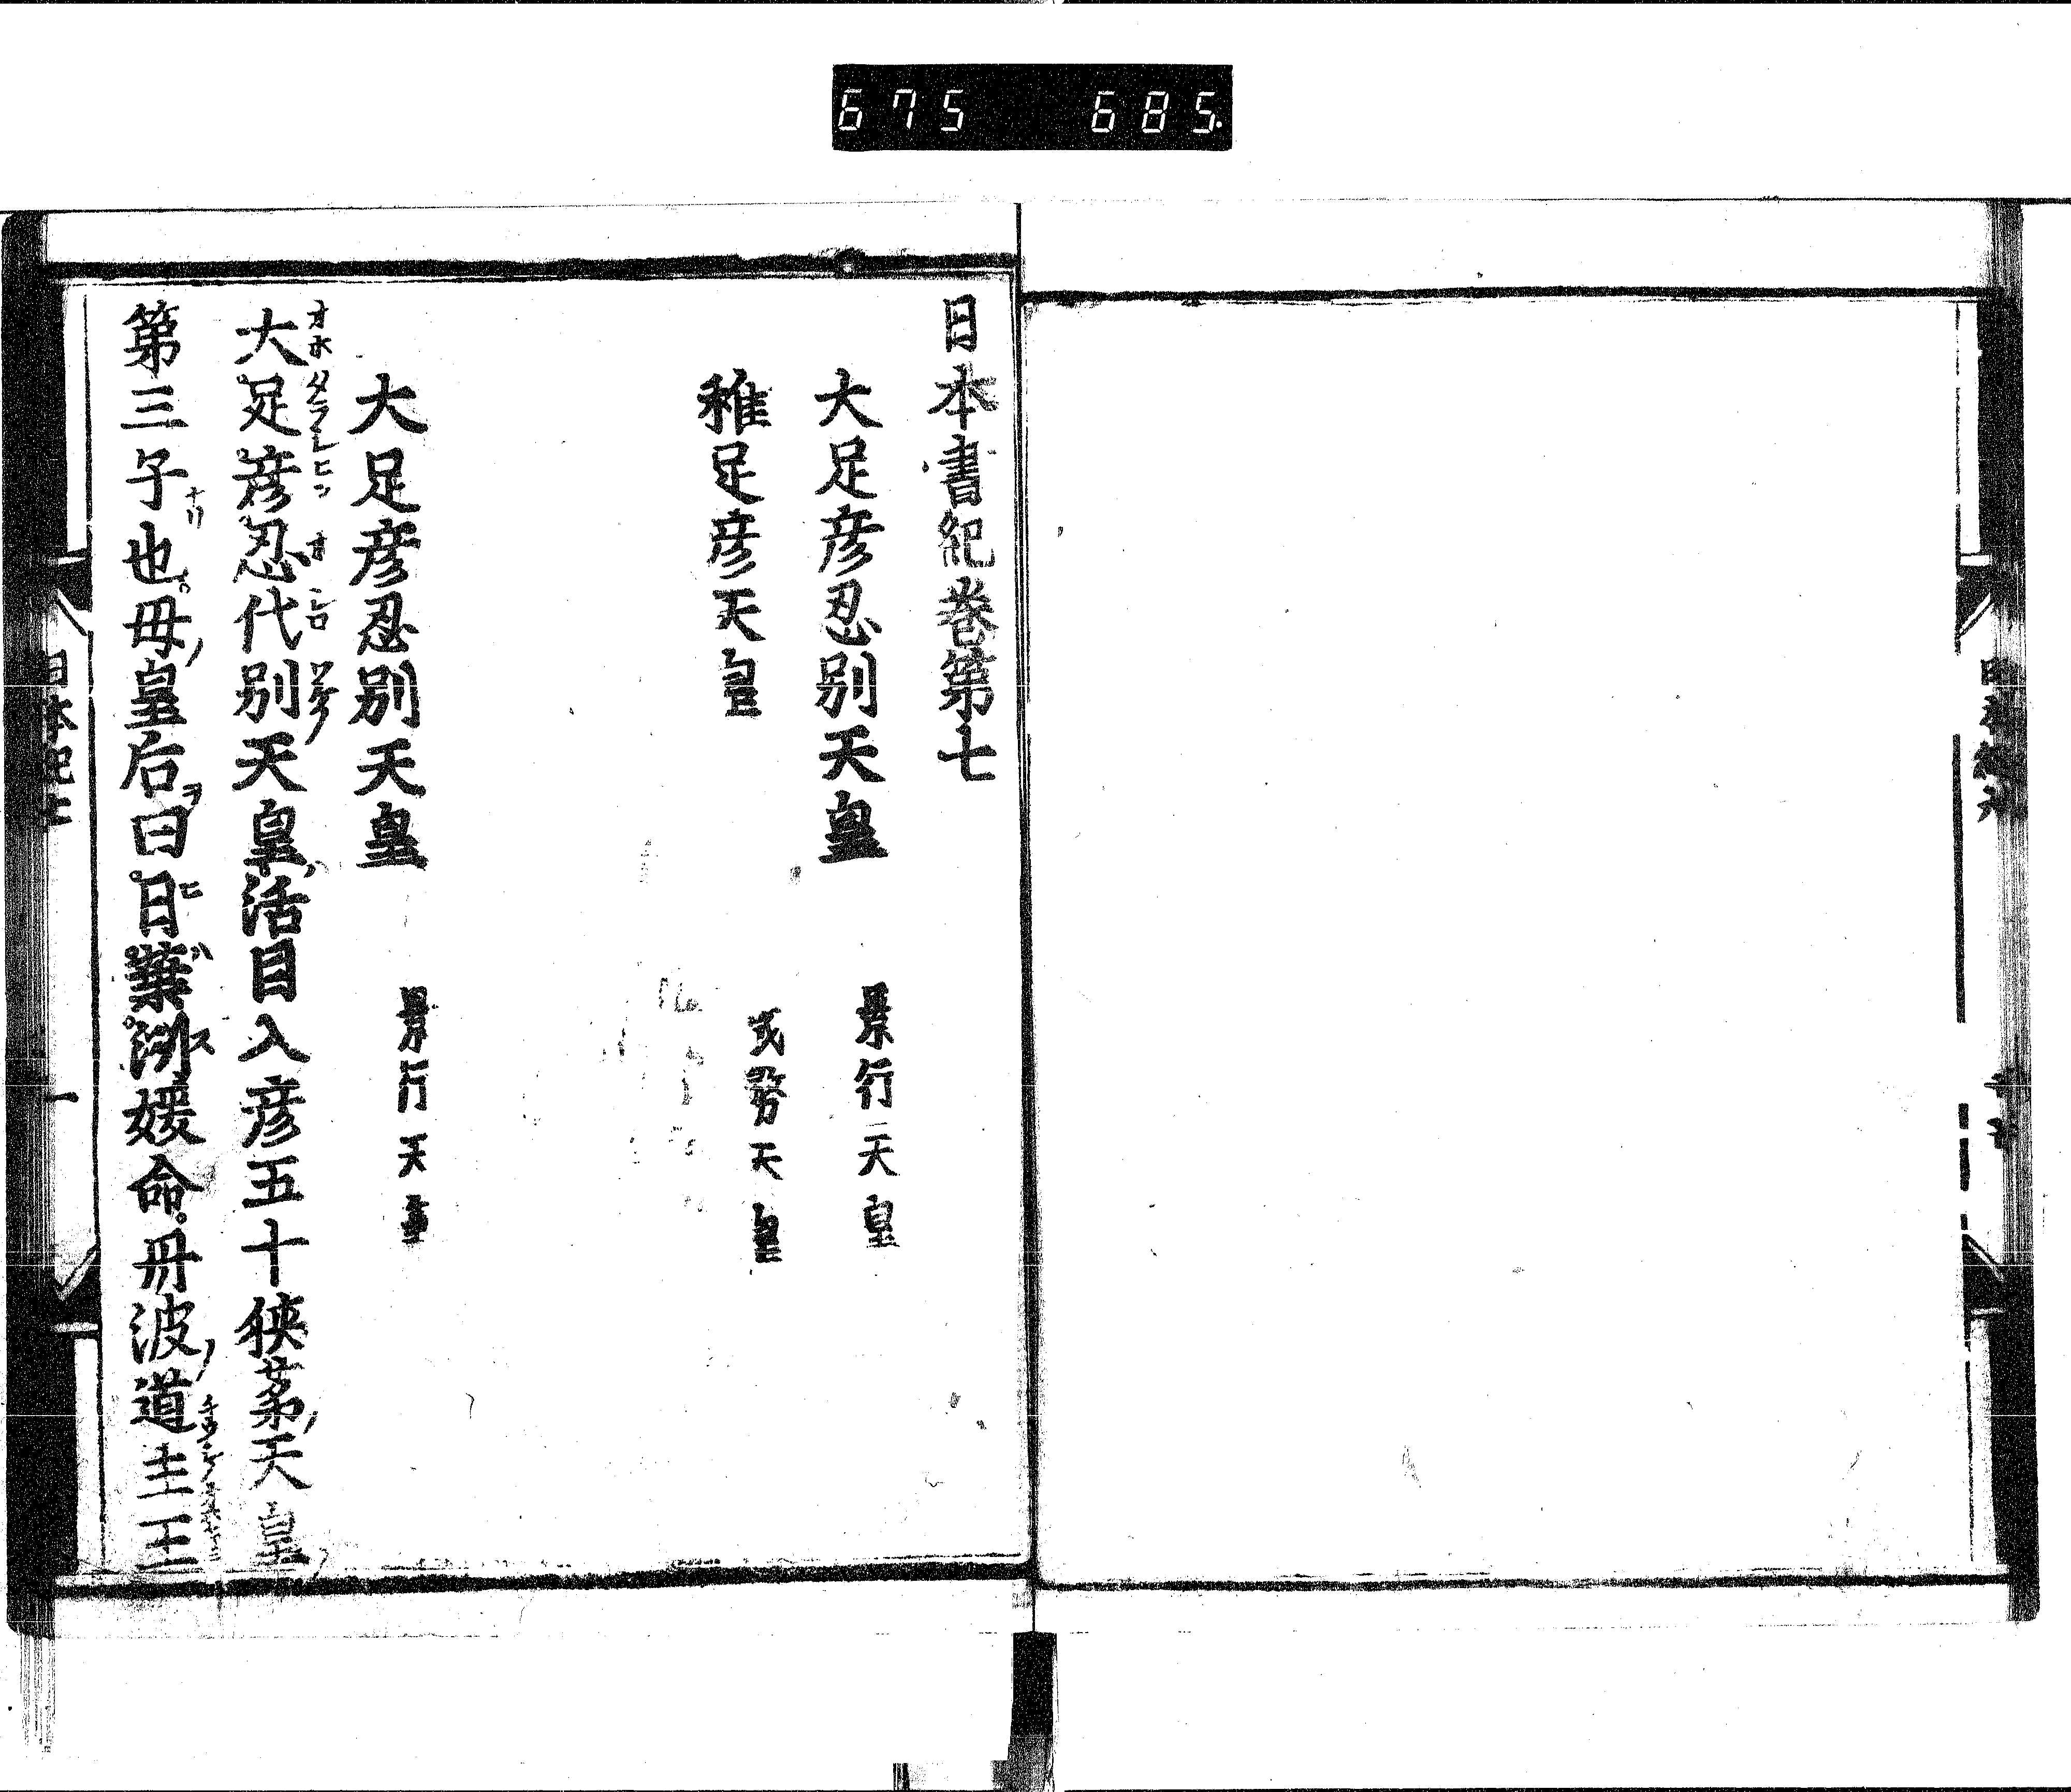 675 685.
日本書紀卷第七
大足彦忍別天皇 景行天皇
稚足彦天皇 成務天皇
大足彦忍別天皇 景行天皇
大足彦忍代別天皇活目入彦五十狹茅天皇
第三子也母皇后曰日葉洲媛命丹波道主王
日本紀七
一